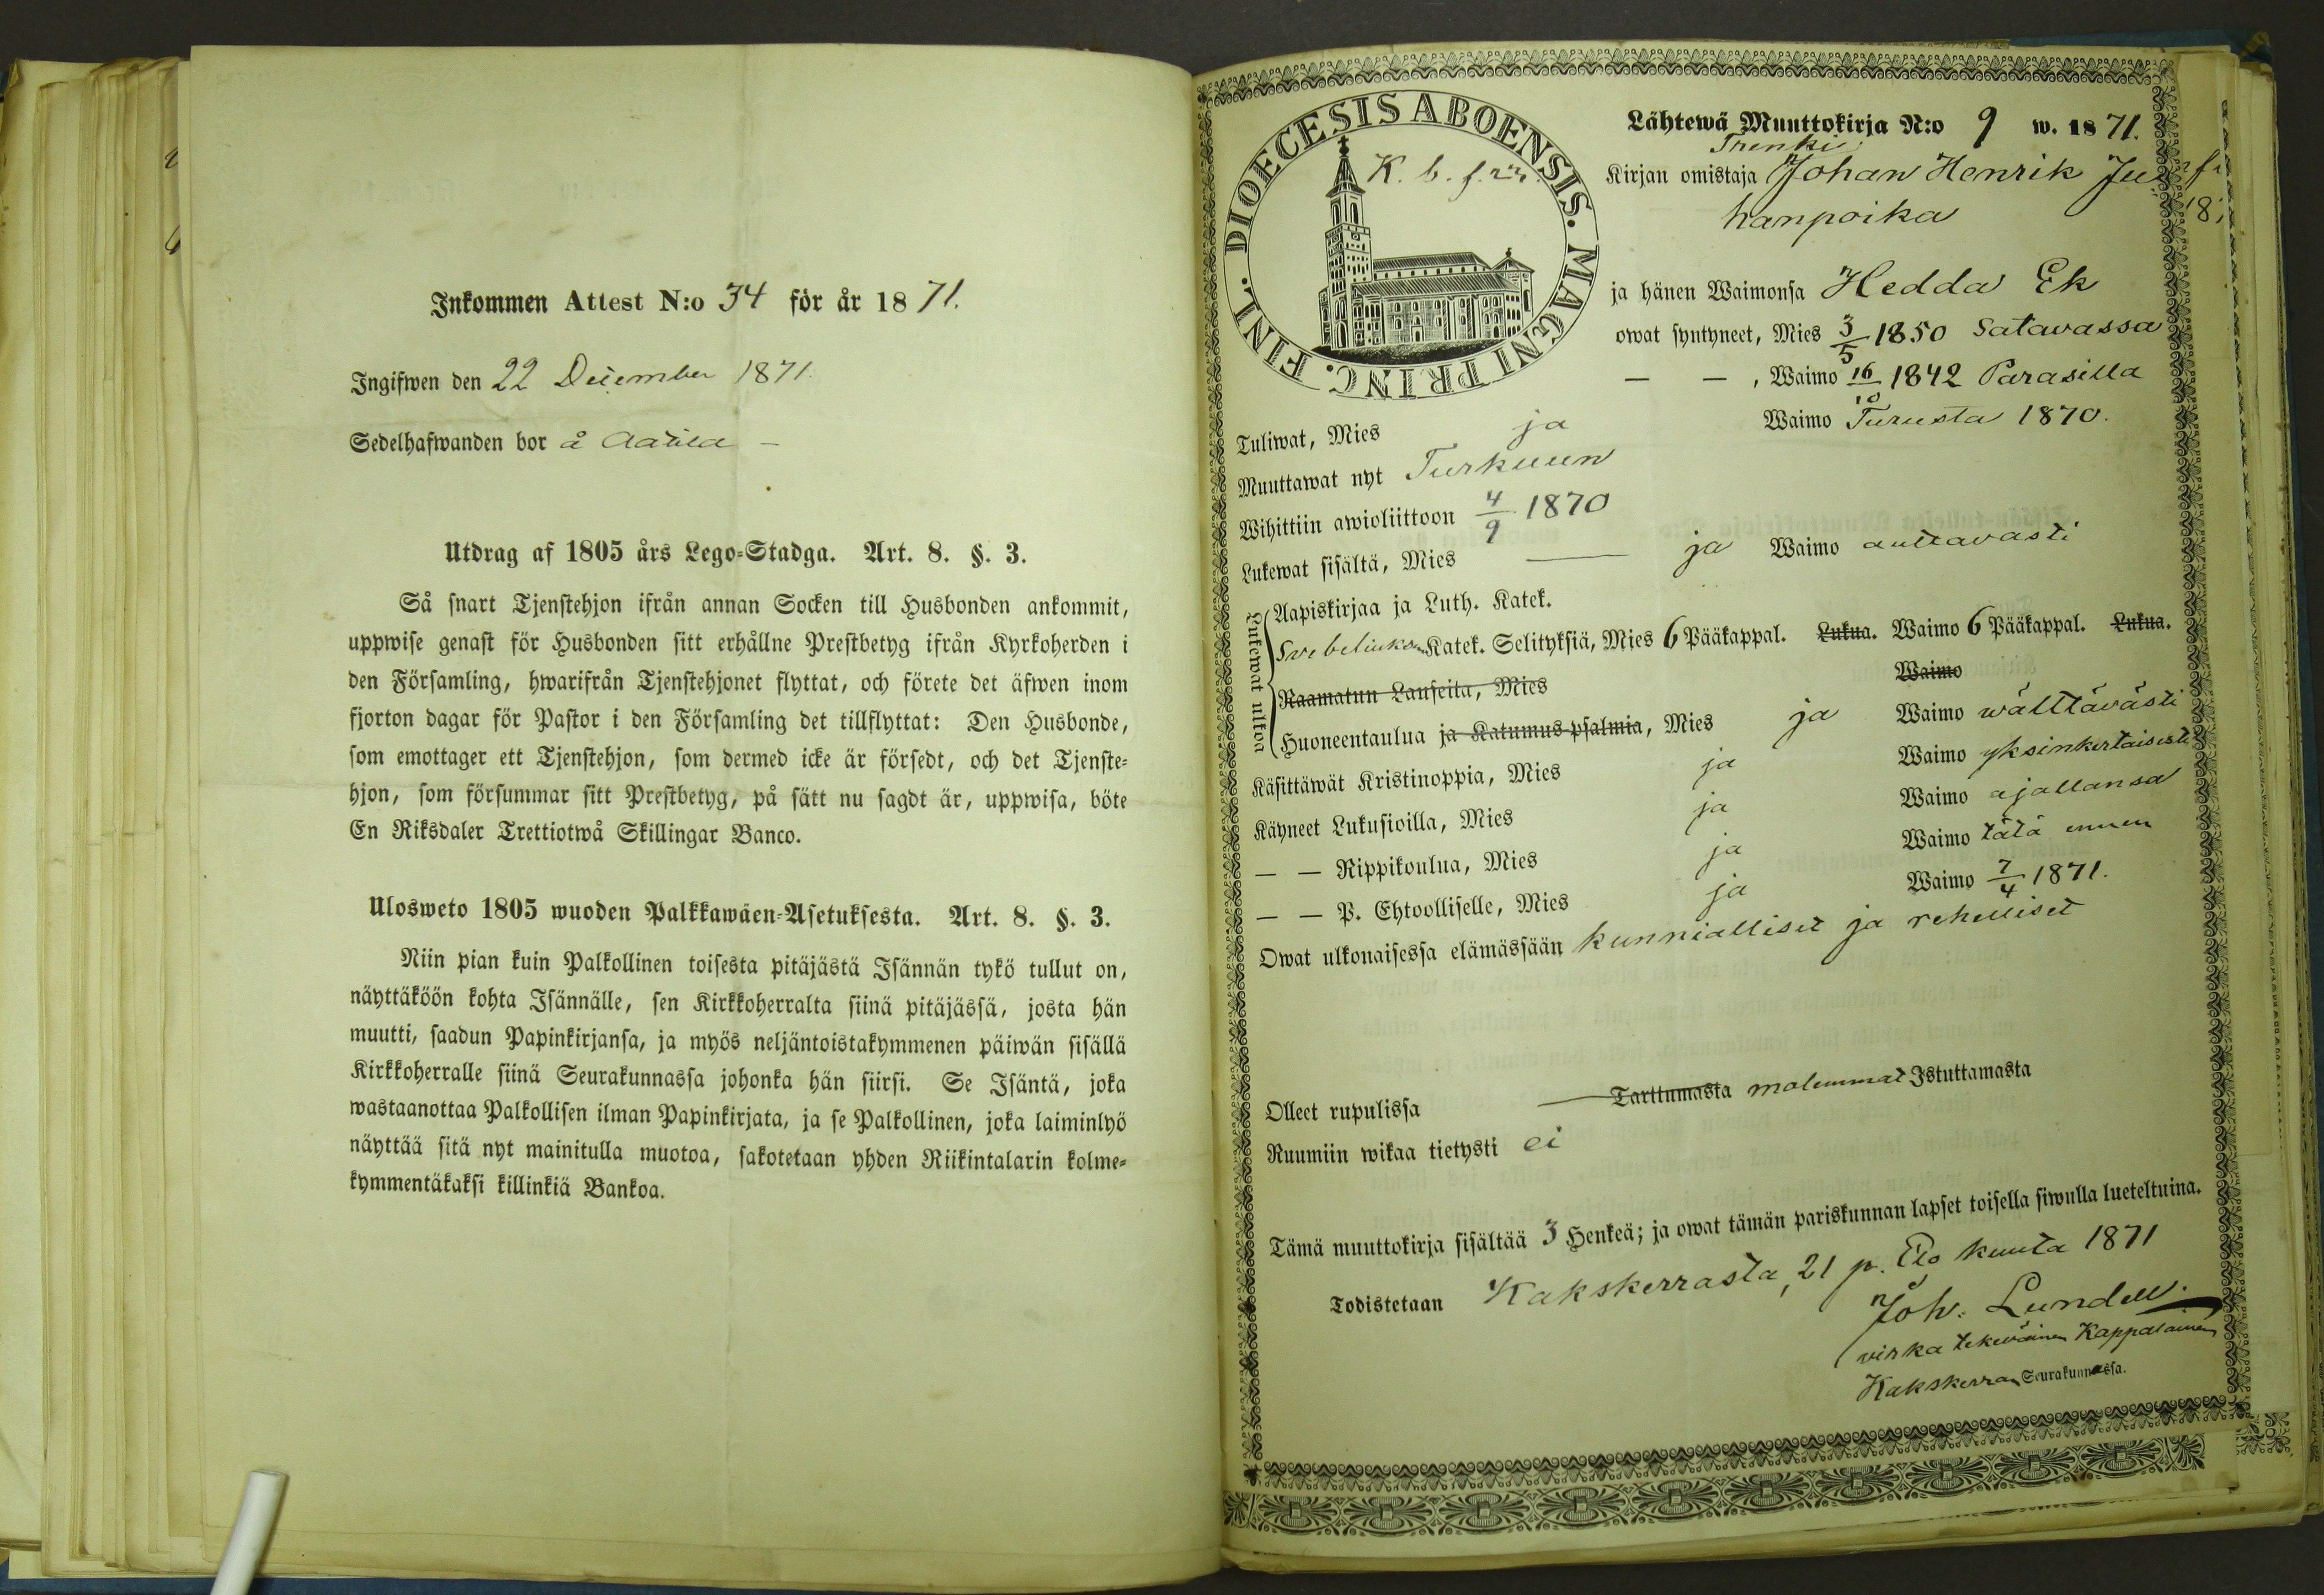 Inkommen Attest N:o 34 för år 1871.
Ingifwen den 22 December 1871.
Sedelhafwanden bor å
Utdrag af 1805 års Lego-Stadga. Art. 8. §. 3.
Så snart Tjenstehjon ifrån annan Socken till Husbonden ankommit,
uppwise genast för Husbonden sitt erhållne Prestbetyg ifrån Kyrkoherden i
den Församling, hwarifrån Tjenstehjonet flyttat, och förete det äfwen inom
fjorton dagar för Pastor i den Församling det tillflyttat: Den Husbonde,
som emottager ett Tjenstehjon, som dermed icke är försedt, och det Tjenste-
hjon, som försummar sitt Prestbetyg, på sätt nu sagdt är, uppwisa, böte
En Riksdaler Trettiotwå Skillingar Banco.
Ulosweto 1805 wuoden Palkkawäen-Asetuksesta. Art. 8. §. 3.
Niin pian kuin Palkollinen toisesta pitäjästä Isännän tykö tullut on,
näyttäköön kohta Isännälle, sen Kirkkoherralta siinä pitäjässä, josta hän
muutti, saadun Papinkirjansa, ja myös neljäntoistakymmenen päiwän sisällä
Kirkkoherralle siinä Seurakunnassa johonka hän siirsi. Se Isäntä, joka
wastaanottaa Palkollisen ilman Papinkirjata, ja se Palkollinen, joka laiminlyö
näyttää sitä nyt mainitulla muotoa, sakotetaan yhden Riikintalarin kolme-
kymmentäkaksi killinkiä Bankoa.
DIOECESIS ABOENSIS. MAGNI PRINC. FINL.
K. b. f. 23.
Lähtewä Muuttokirja N:o 9 w. 1871.
Trenki
Kirjan omistaja Johan Henrik Ju
hanpoika
ja hänen Waimonsa Hedda Ek
owat syntyneet, Mies 3/5 1850 Satavassa
— — , Waimo 16/10 1842 Parasilla
Tuliwat, Mies ja Waimo Turusta 1870.
Muuttawat nyt Turkuun
Wihittiin awioliittoon 4/9 1870
Lukewat sisältä, Mies — ja Waimo auttavasti
Lukewat ulkoa
Aapiskirjaa ja Luth. Katek.
Svebeliuksen Katek. Selityksiä, Mies 6 Pääkappal. Lukua. Waimo 6 Pääkappal. Lukua.
Raamatun Lauseita, Mies Waimo
Huoneentaulua ja Katumus-psalmia, Mies ja Waimo wälttävästi
Käsittäwät Kristinoppia, Mies ja Waimo yksinkertaisesti
Käyneet Lukusioilla, Mies ja Waimo ajallansa
— — Rippikoulua, Mies ja Waimo tätä ennen
— — P. Ehtoolliselle, Mies ja Waimo 7/4 1871.
Owat ulkonaisessa elämässään kunnialliset ja rehelliset
Olleet rupulissa — Tarttumasta molemmat Istuttamasta
Ruumiin wikaa tietysti ei
Tämä muuttokirja sisältää 3 Henkeä; ja owat tämän pariskunnan lapset toisella siwulla lueteltuina.
Todistetaan Kakskerrasta, 21 p. Elo kuuta 1871
Joh. Lundell
virka tekeväinen Kappalainen
Kakskerran Seurakunnassa.